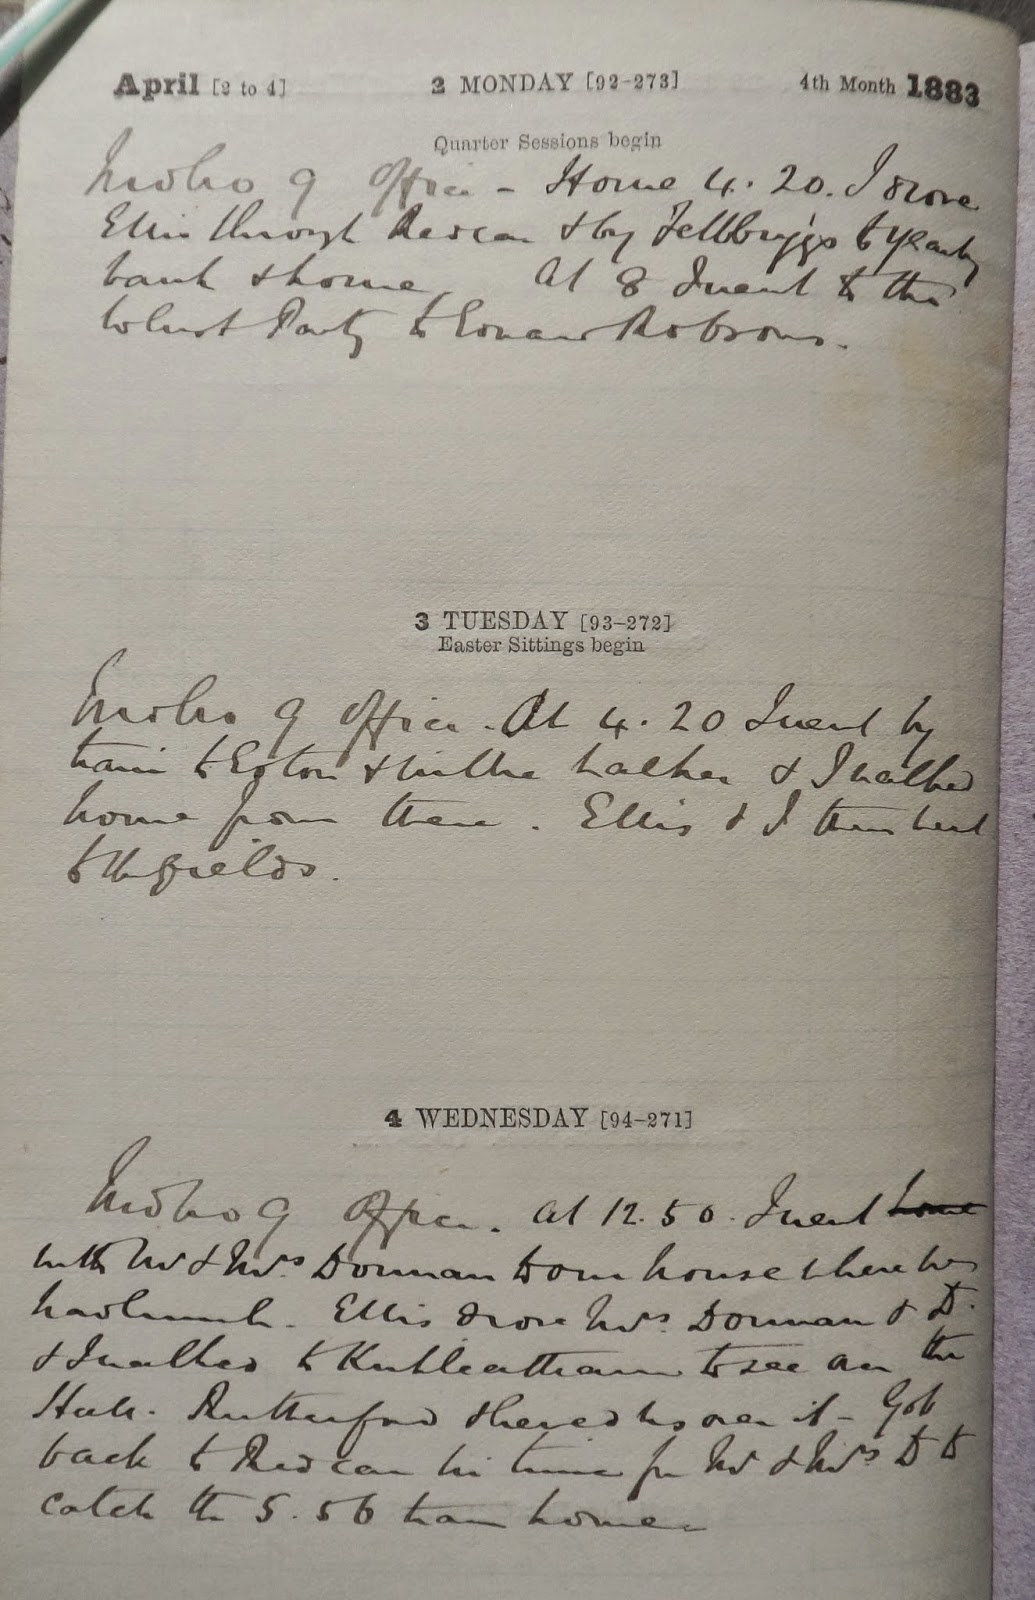 April [2 to 4] 2 MONDAY [92-273] 4th Month 1883
Quarter Sessions begin
Mdbro 9 Office - Home 4.20. I drove
Ellis through Redcar & by Fellbriggs to Yearby
bank & home At 8 I went to the
Whist Party to Edward Robsons.
3 TUESDAY [93-272]
Easter Sittings begin
Mdbro 9 Office. At 4.20 I went by
train to Eston & Willie Walker & I walked
home from there. Ellis & I then went
to the fields.
4 WEDNESDAY [94-271]
Mdbro 9 Office. At 12.50. I went home
with Mr & Mrs Dorman to our house where we
had lunch. Ellis drove Mrs Dorman & D.
& I walked to Kirkleatham to see over the
Hall. Rutherford shewed us over it - Got
back to Redcar in time for Mr & Mrs D to
catch the 5.56 train home